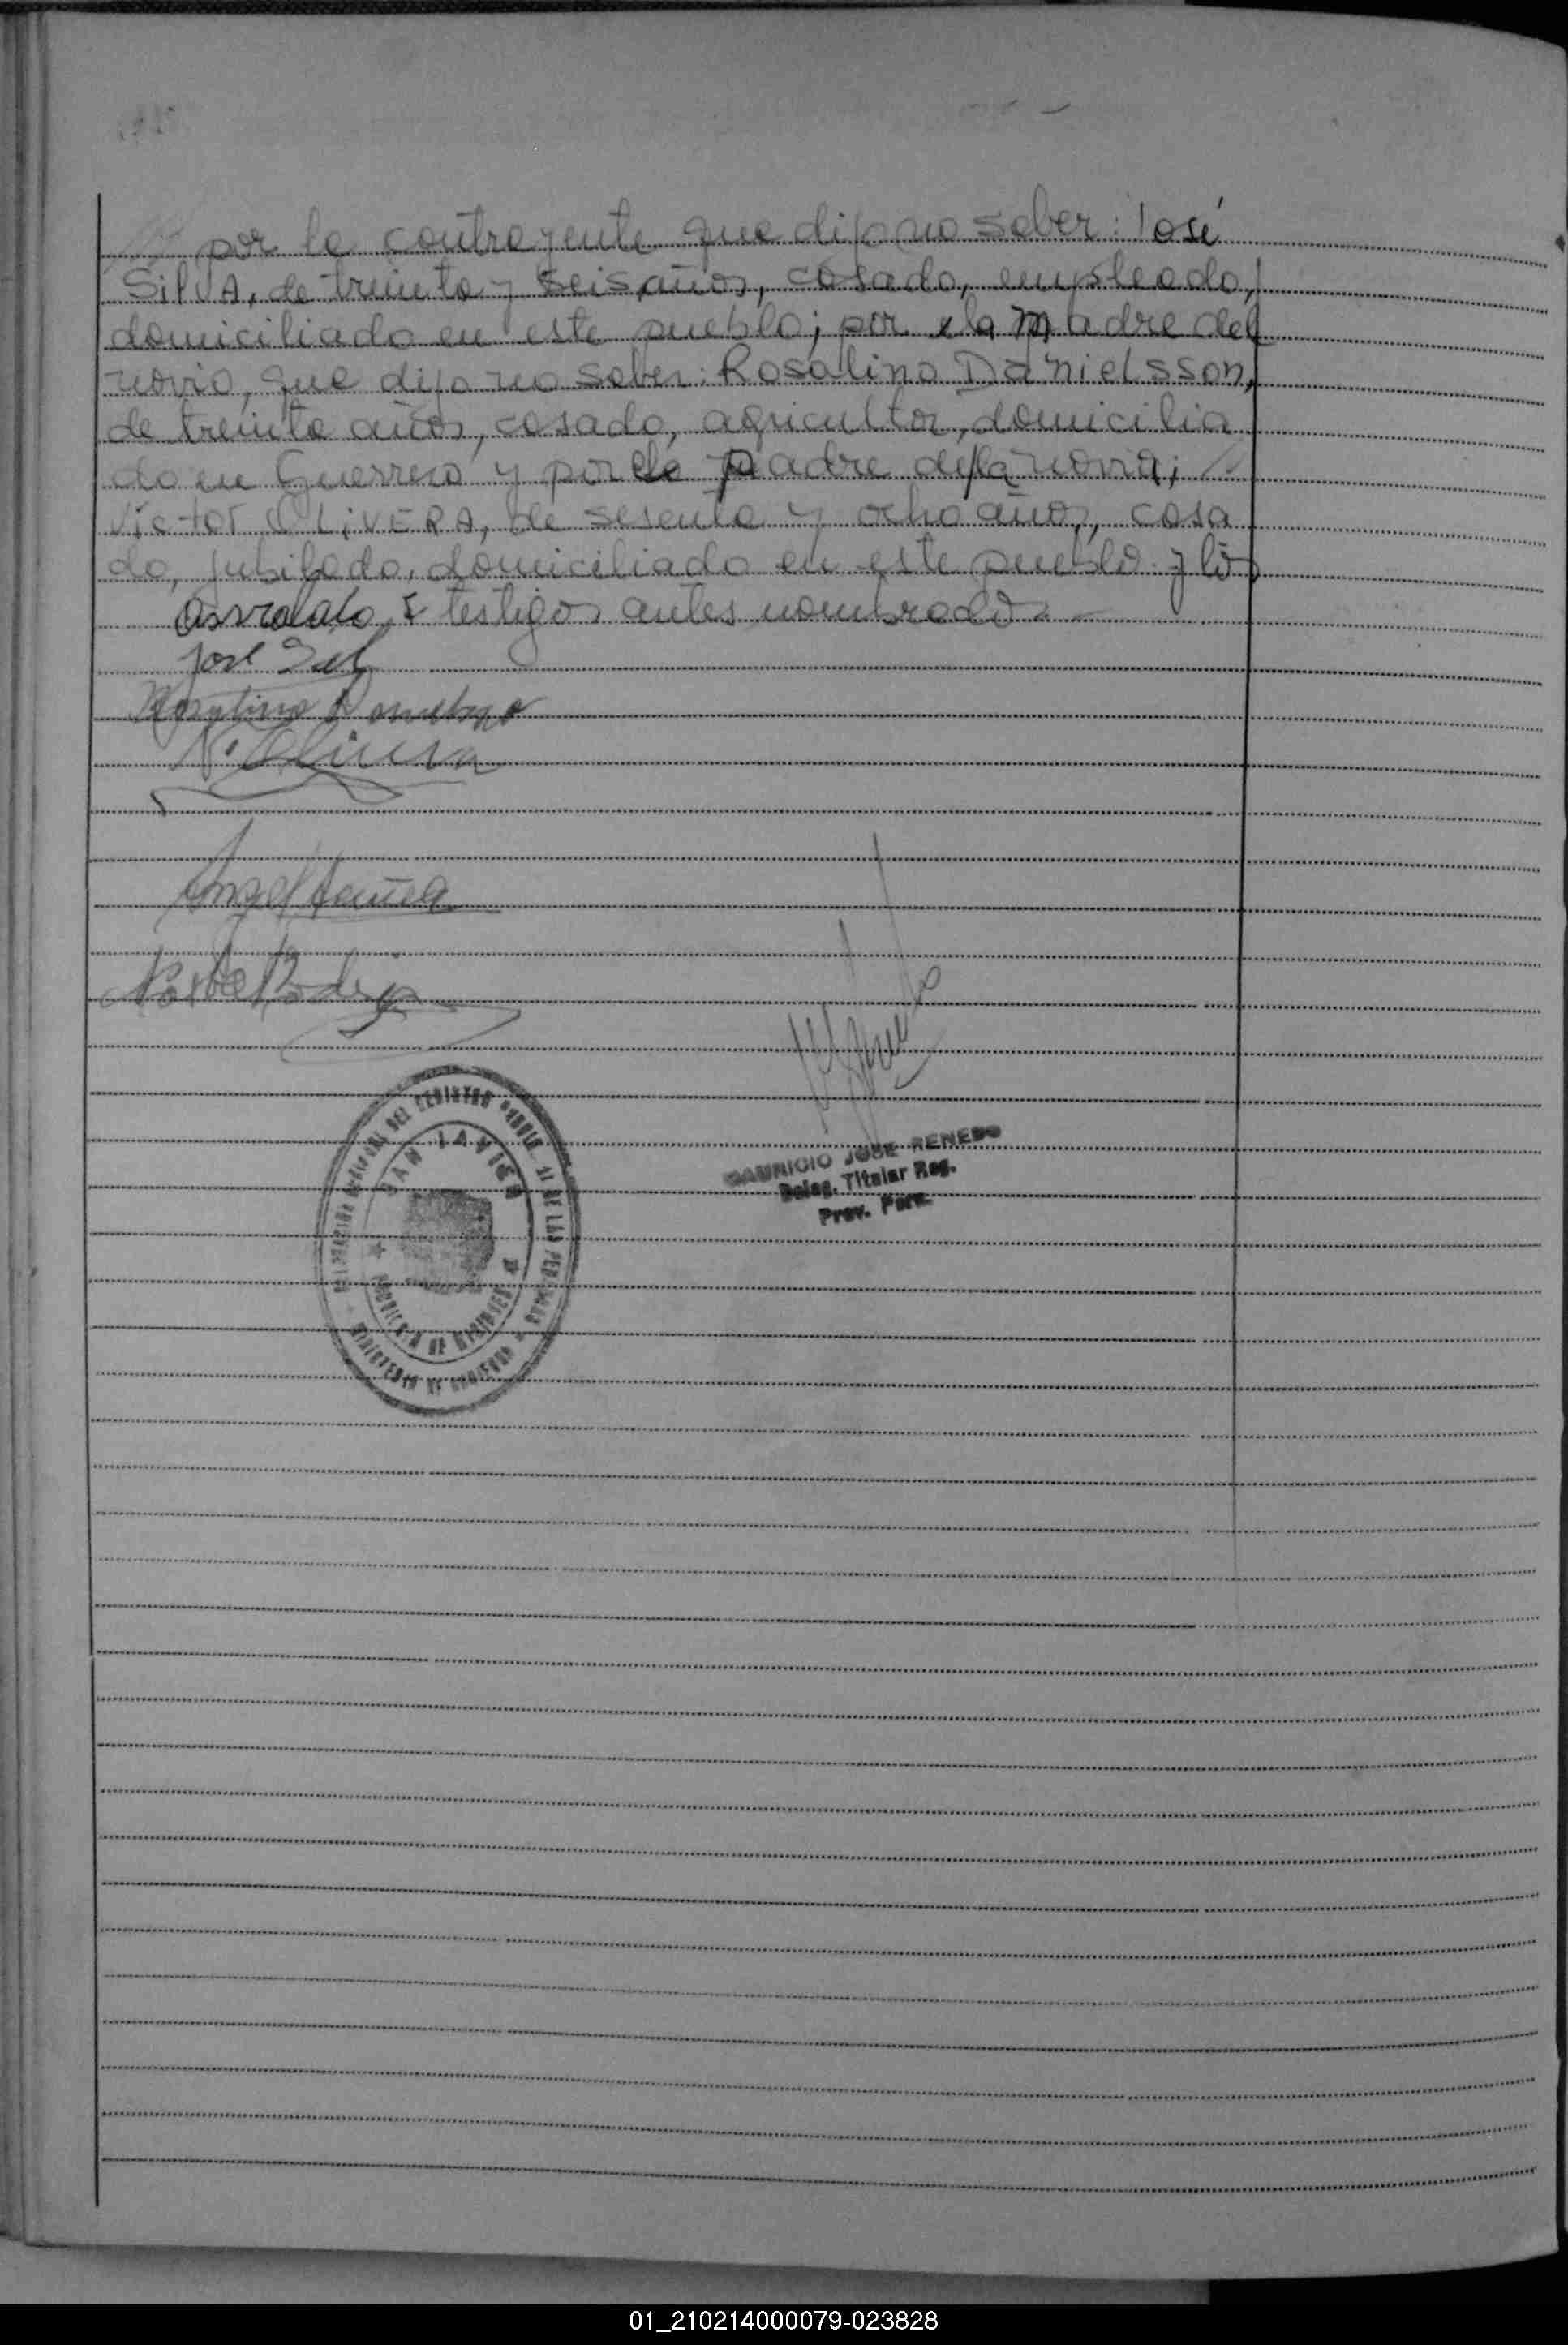 /// por la contrayente que dijo no saber: José
SilVA, de treinta y seis años, casado, empleado,
domiciliado en este pueblo; por la madre del
novio, que dijo no saber: Rosalino Danielsson,
de treinta años, casado, agricultor, domicilia
do en Guerrico y por el padre de la novia;
Víctor OLIVERA, de sesenta y ocho años, casa
do, jubilado, domiciliado en este pueblo y los
testigos antes nombrados.-
José
V. Olivera
Angel
SAN JAVIER
MAURICIO JOSE RENEDO
Deleg. Titular Reg.
Prov. Pers.
01_210214000079-023828